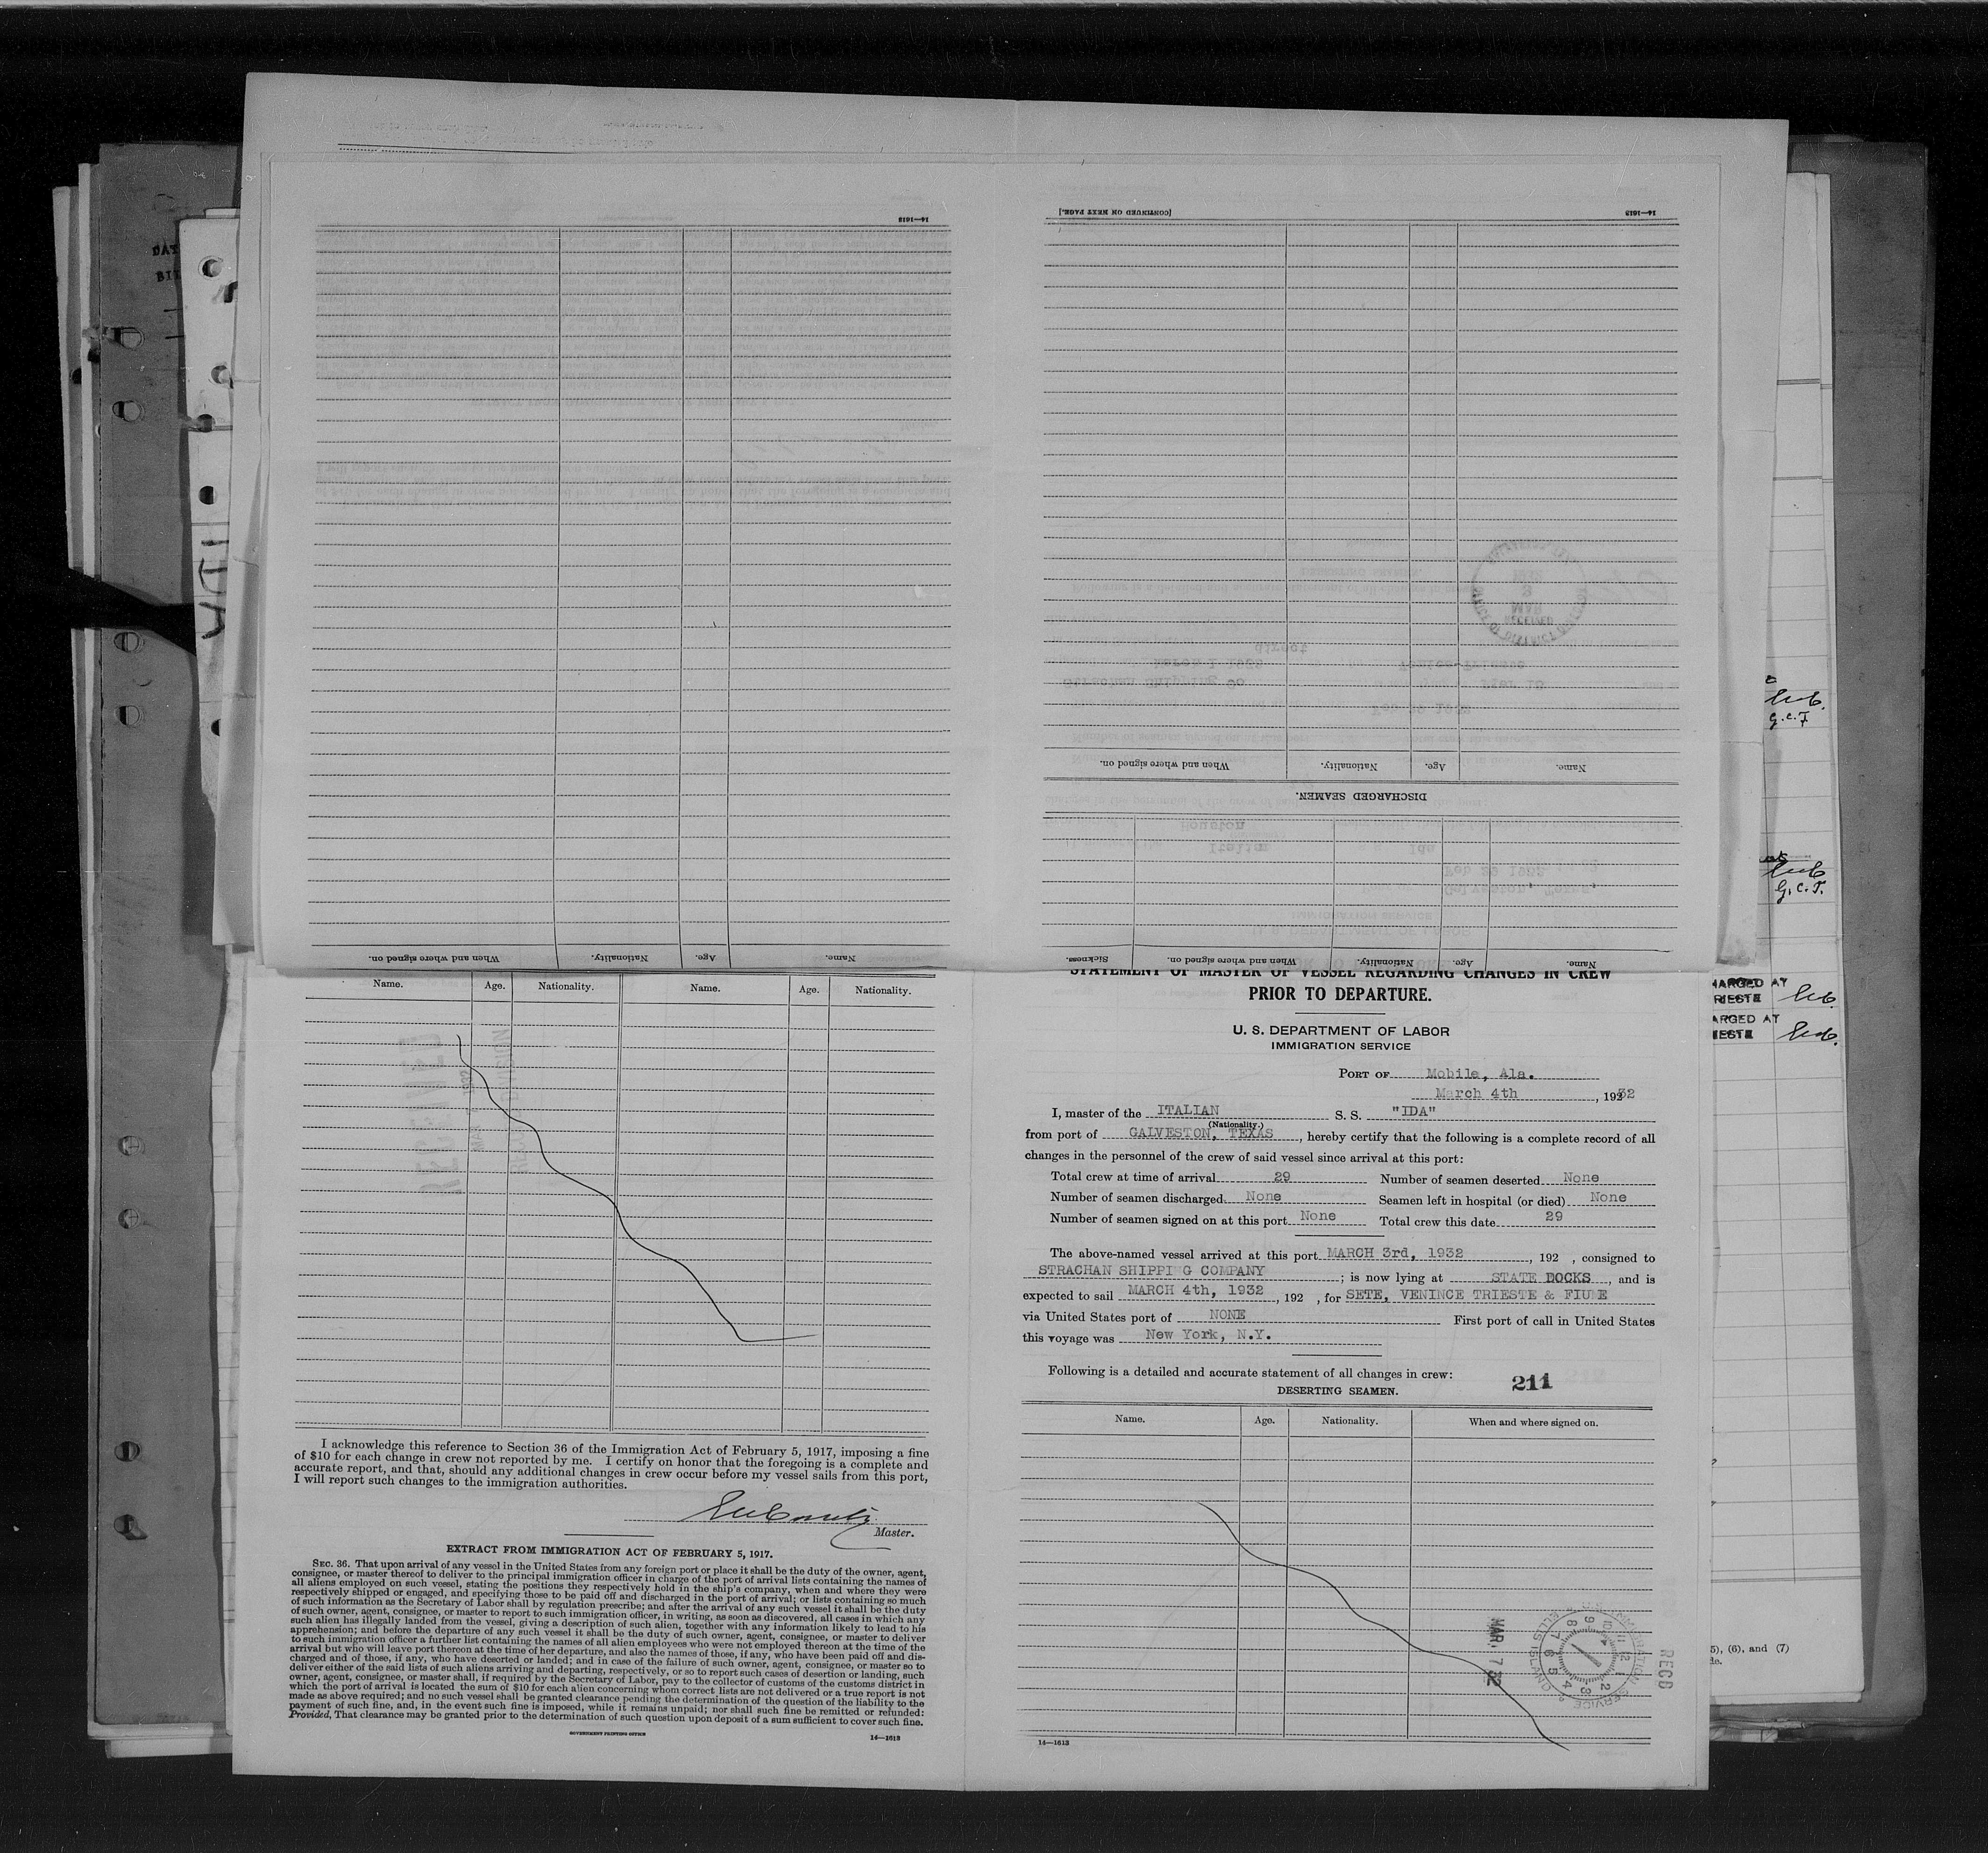 14—1613
[CONTINUED ON NEXT PAGE.]
14—1613
When and where signed on.
Nationality.
Age.
Name.
DISCHARGED SEAMEN.
When and where signed on.
Nationality.
Age.
Name.
Sickness.
When and where signed on.
Nationality.
Age.
Name.
IDA
Name.
Age.
Nationality.
Name.
Age.
Nationality.
I acknowledge this reference to Section 36 of the Immigration Act of February 5, 1917, imposing a fine
of $10 for each change in crew not reported by me. I certify on honor that the foregoing is a complete and
accurate report, and that, should any additional changes in crew occur before my vessel sails from this port,
I will report such changes to the immigration authorities.
Master.
EXTRACT FROM IMMIGRATION ACT OF FEBRUARY 5, 1917.
SEC. 36. That upon arrival of any vessel in the United States from any foreign port or place it shall be the duty of the owner, agent,
consignee, or master thereof to deliver to the principal immigration officer in charge of the port of arrival lists containing the names of
all aliens employed on such vessel, stating the positions they respectively hold in the ship's company, when and where they were
respectively shipped or engaged, and specifying those to be paid off and discharged in the port of arrival; or lists containing so much
of such information as the Secretary of Labor shall by regulation prescribe; and after the arrival of any such vessel it shall be the duty
of such owner, agent, consignee, or master to report to such immigration officer, in writing, as soon as discovered, all cases in which any
such alien has illegally landed from the vessel, giving a description of such alien, together with any information likely to lead to his
apprehension; and before the departure of any such vessel it shall be the duty of such owner, agent, consignee, or master to deliver
to such immigration officer a further list containing the names of all alien employees who were not employed thereon at the time of the
arrival but who will leave port thereon at the time of her departure, and also the names of those, if any, who have been paid off and dis-
charged and of those, if any, who have deserted or landed; and in case of the failure of such owner, agent, consignee, or master so to
deliver either of the said lists of such aliens arriving and departing, respectively, or so to report such cases of desertion or landing, such
owner, agent, consignee, or master shall, if required by the Secretary of Labor, pay to the collector of customs of the customs district in
which the port of arrival is located the sum of $10 for each alien concerning whom correct lists are not delivered or a true report is not
made as above required; and no such vessel shall be granted clearance pending the determination of the question of the liability to the
payment of such fine, and, in the event such fine is imposed, while it remains unpaid; nor shall such fine be remitted or refunded:
Provided, That clearance may be granted prior to the determination of such question upon deposit of a sum sufficient to cover such fine.
GOVERNMENT PRINTING OFFICE
14—1613
STATEMENT OF MASTER OF VESSEL REGARDING CHANGES IN CREW
PRIOR TO DEPARTURE.
U. S. DEPARTMENT OF LABOR
IMMIGRATION SERVICE
PORT OF Mobile, Ala.
March 4th, 1932
I, master of the ITALIAN S. S. "IDA"
(Nationality.)
from port of GALVESTON, TEXAS, hereby certify that the following is a complete record of all
changes in the personnel of the crew of said vessel since arrival at this port:
Total crew at time of arrival 29 Number of seamen deserted None
Number of seamen discharged None Seamen left in hospital (or died) None
Number of seamen signed on at this port None Total crew this date 29
The above-named vessel arrived at this port MARCH 3rd, 1932, 192 , consigned to
STRACHAN SHIPPI G COMPANY; is now lying at STATE DOCKS, and is
expected to sail MARCH 4th, 1932, 192 , for SETE, VENINCE TRIESTE & FIUME
via United States port of NONE First port of call in United States
this voyage was New York, N.Y.
Following is a detailed and accurate statement of all changes in crew:
211
DESERTING SEAMEN.
Name.
Age.
Nationality.
When and where signed on.
MAR. 7 32
REC'D
14—1613
G.C.T
G.C.T.
5), (6), and (7)